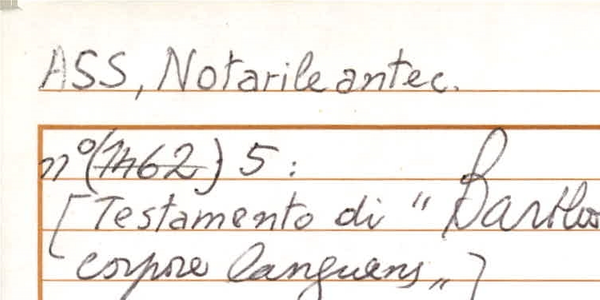 ASS, Notarile antec.
n° (1462) 5:
[Testamento di "
corpore languens"]